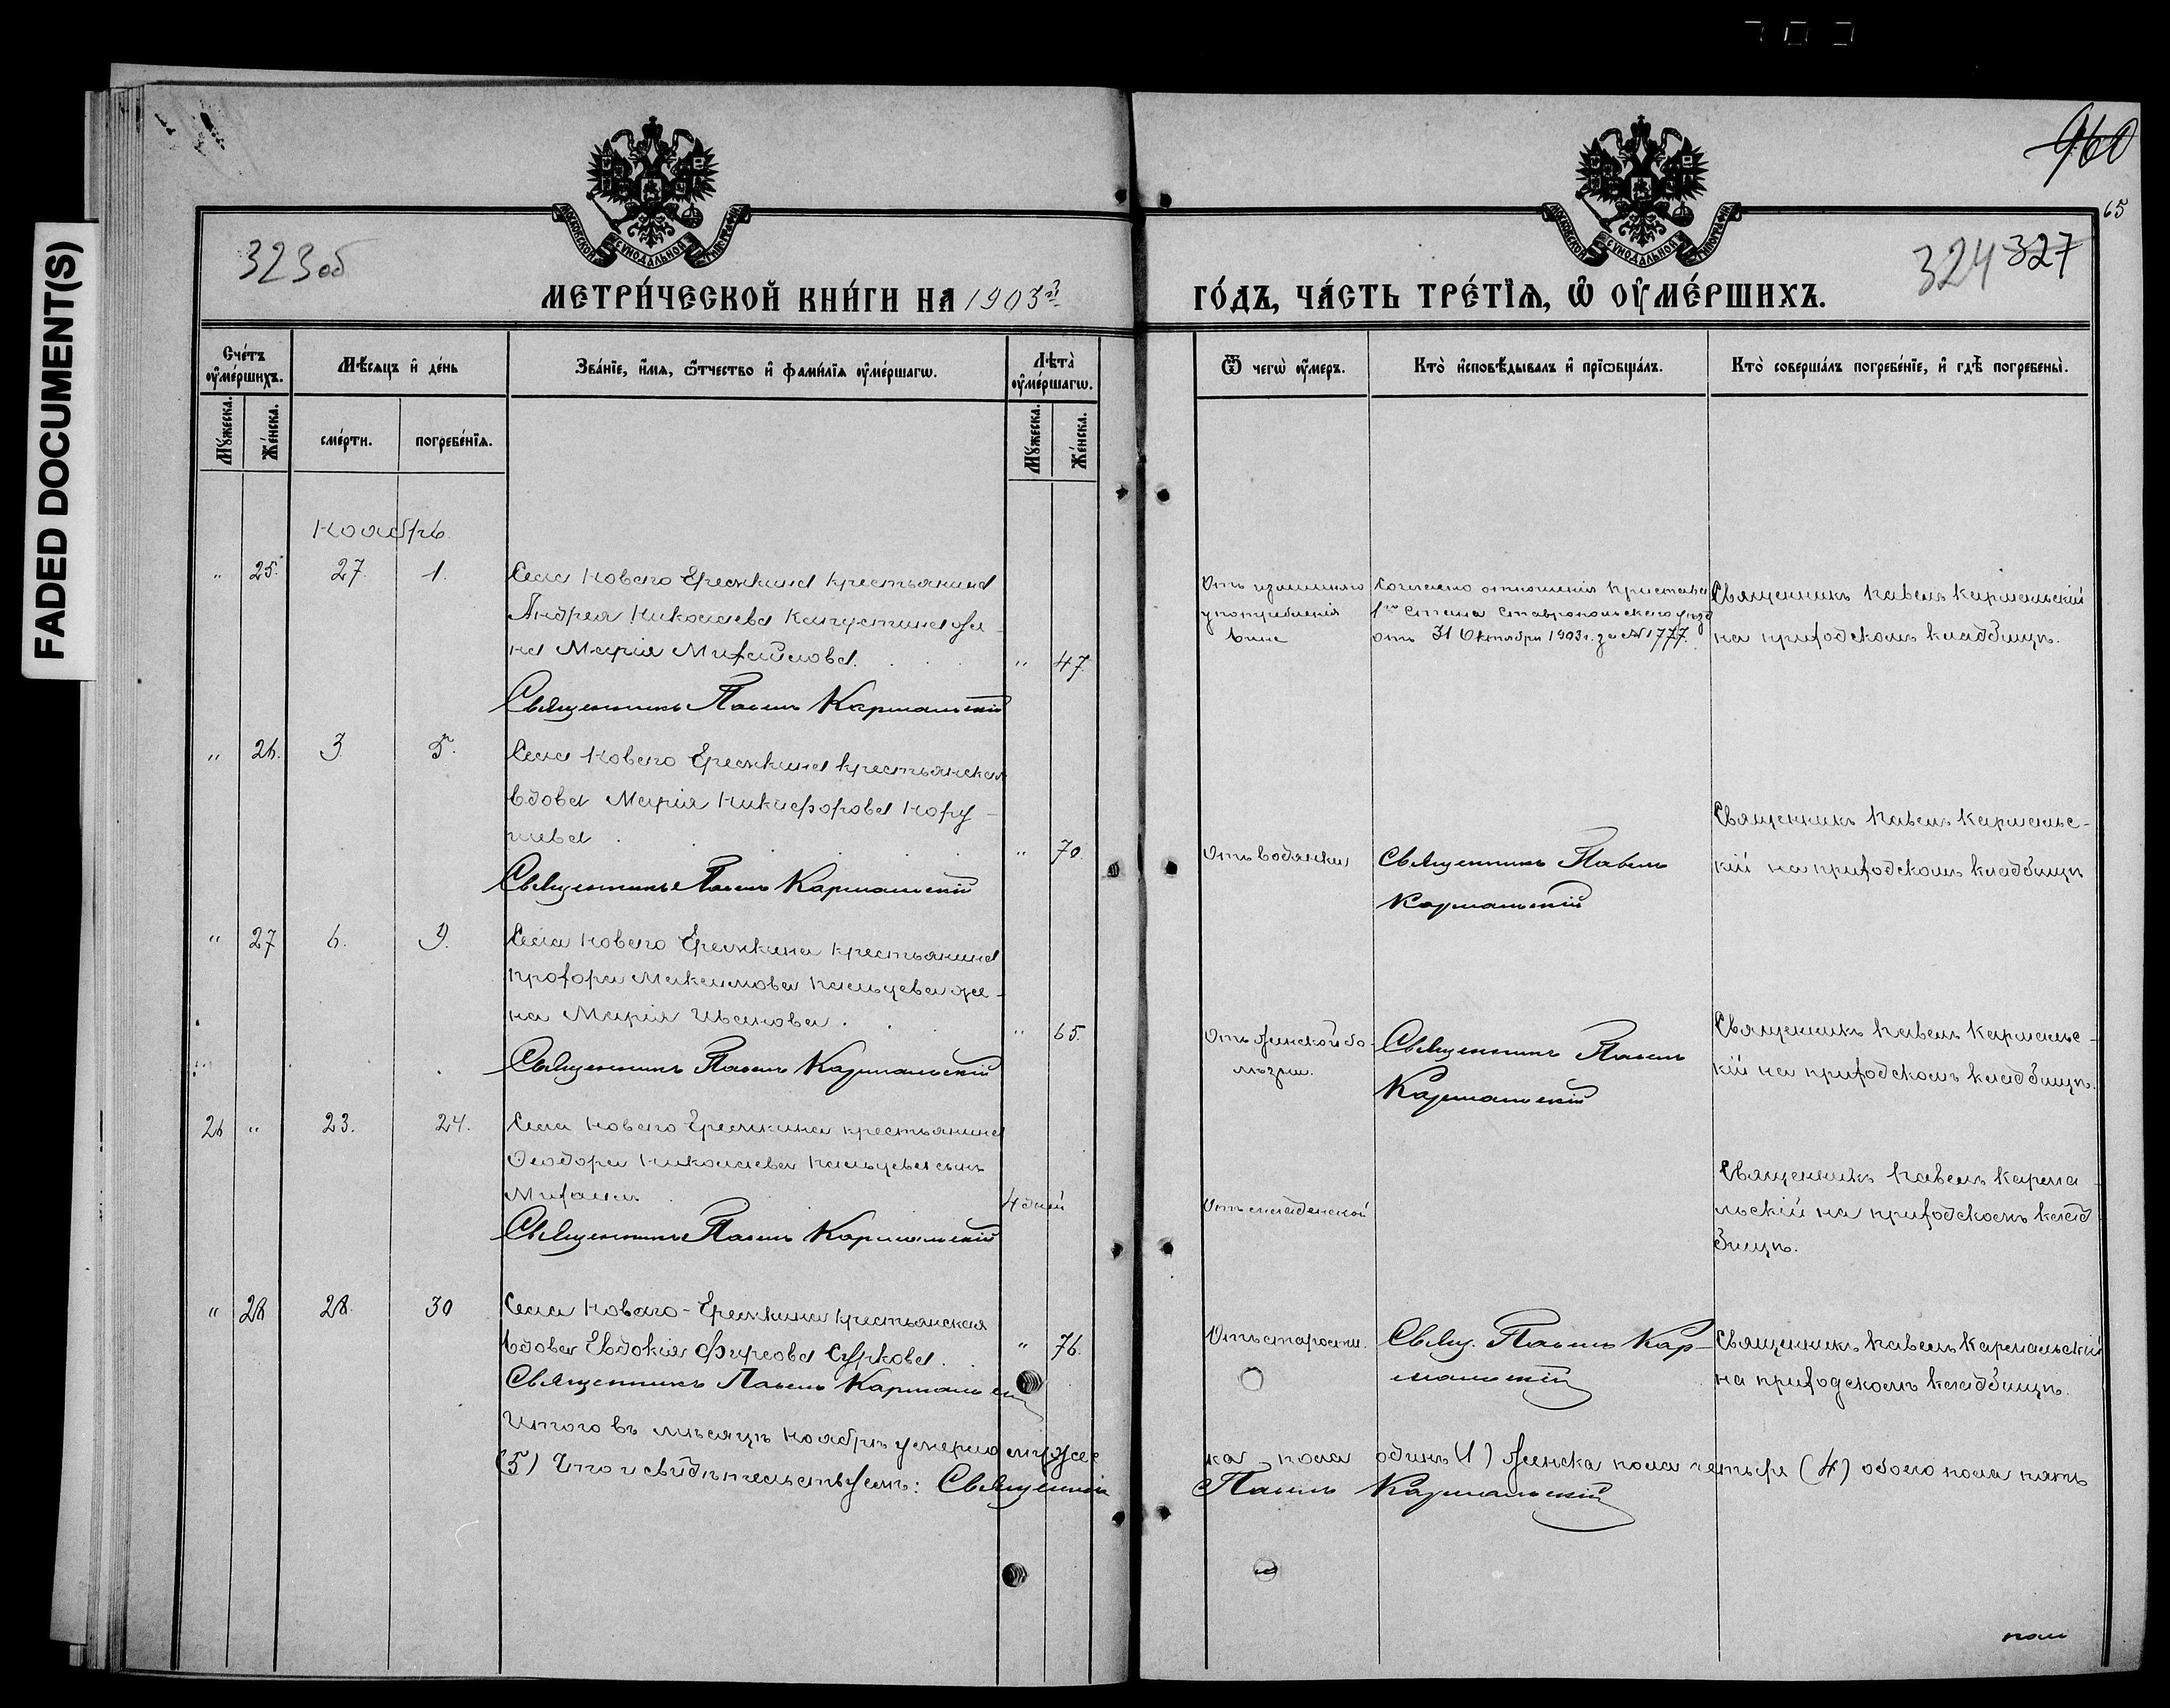 FADED DOCUMENT(S)
960
65
323об
324 327
МОСКОВСКОЙ СѴНОДАЛЬНОЙ ТИПОГРАФІИ
МОСКОВСКОЙ СѴНОДАЛЬНОЙ ТИПОГРАФІИ
МЕТРИ́ЧЕСКОЙ КНИ́ГИ НА 1903й
ГО́ДЪ, ЧА́СТЬ ТРЕ́ТІѦ, Ѡ ОУ҆МЕ́РШИХЪ.
Сче́тъ оу҆ме́ршихъ.
Мꙋ́жеска.
Же́нска.
Мѣ́сѧцъ и҆ де́нь
сме́рти.
погребе́нїѧ.
Зва́нїе, и҆́мѧ, ѻ҆́тчество и҆ фами́лїѧ оу҆ме́ршагѡ.
Лѣ́та оу҆ме́ршагѡ.
Мꙋ́жеска.
Же́нска.
Ѿ чегѡ̀ оу҆́меръ.
Кто̀ и҆сповѣ́дывалъ и҆ прїѡбща́лъ.
Кто̀ соверша́лъ погребе́нїе, и҆ гдѣ̀ погребены̀.
Ноябрь
" 25. 27. 1. Села Новаго Еремкина крестьянина
Андрея Николаева Капустина же-
на Марія Михайлова. " 47.
Священникъ Павелъ Кармальскій
Отъ излишняго
употребленія
вина
Согласно отношенія Пристава
1го Стана Ставропольскаго уѣзда
отъ 31 Октября 1903 г. за № 1777.
Священникъ Павелъ Кармальскій
на приходскомъ кладбищѣ.
" 26. 3. 5. Села Новаго Еремкина крестьянская
вдова Марія Никифорова Нору-
шева " 70.
Священникъ Павелъ Кармальскій
Отъ водянки
Священникъ Павелъ
Кармальскій
Священникъ Павелъ Кармальс-
кій на приходскомъ кладбищѣ
" 27 6. 9. Села Новаго Еремкина крестьянина
Прохора Максимова Пальцева же-
на Марія Иванова. " 65.
Священникъ Павелъ Кармальскій
Отъ женской бо-
лѣзни.
Священникъ Павелъ
Кармальскій
Священникъ Павелъ Кармальс-
кій на приходскомъ кладбищѣ.
26 " 23. 24. Села Новаго Еремкина крестьянина
Ѳеодора Николаева Пальцева сынъ
Михаилъ 4 дней
Священникъ Павелъ Кармальскій
Отъ младенской
Священникъ Павелъ Карма
льскій на приходскомъ клад
бищѣ.
" 28 28. 30 Села Новаго-Еремкина крестьянская
вдова Евдокія Фирсова Суркова. " 76.
Священникъ Павелъ Кармальскій
Отъ старости.
Свящ. Павелъ Кар-
мальскій
Священникъ Павелъ Кармальскій
на приходскомъ кладбищѣ.
Итого въ мѣсяцѣ Ноябрѣ умерло мужес
ка пола одинъ (1) женска пола четыре (4) обоего пола пять
(5) Что и свидѣтельствуемъ: Священникъ
Павелъ Кармальскій